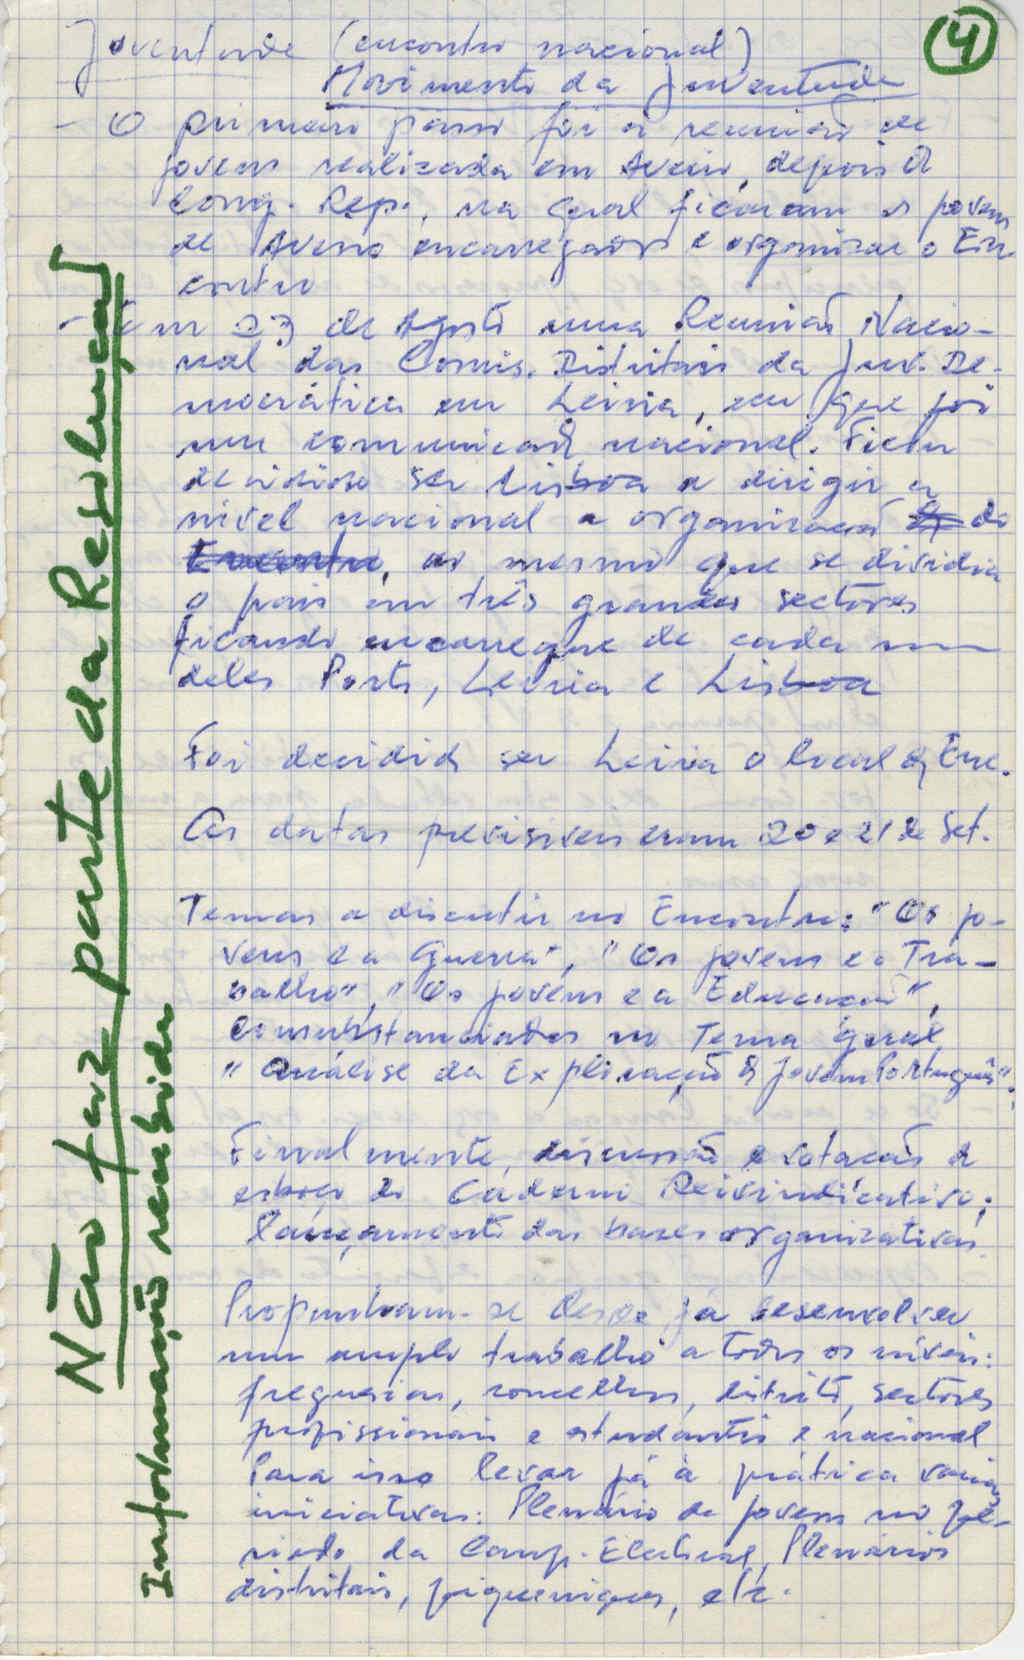 4
Juventude (encontro nacional)
Movimento da Juventude
- O primeiro passo foi a reunião de
jovens realizada em Aveiro, depois do
Cong. Rep., na qual ficaram os jovens
de Aveiro encarregados de organizar o En-
contro
- Em 23 de Agosto uma Reunião Nacio-
nal das Comis. Distritais da Juv. De-
mocrática em Leiria, em que foi
um comunicado nacional. Ficou
decidido ser Lisboa a dirigir a
nível nacional a organização do
Encontro, ao mesmo que se dividia
o país em três grandes sectores
ficando encarregue de cada um
deles Porto, Leiria e Lisboa
Foi decidido ser Leiria o local do Enc.
As datas previsíveis eram 20 e 21 de Set.
Temas a discutir no Encontro: "Os jo-
vens e a Guerra", "Os jovens e o Tra-
balho", "Os jovens e a Educação",
consubstanciados no Tema geral
"Análise da Exploração do Jovem Português".
Finalmente, discussão e votação do
esboço do Caderno Reivindicativo;
lançamento das bases organizativas.
Propunham-se desde já desenvolver
um amplo trabalho a todos os níveis:
freguesias, concelhos, distrito, sectores
profissionais e estudantis e nacional
Para isso levar já à prática várias
iniciativas: Plenário de jovens no pe-
ríodo da Camp. Eleitoral, Plenários
distritais, piqueniques, etc.
Não faz parte da Resolução
Informação recebida